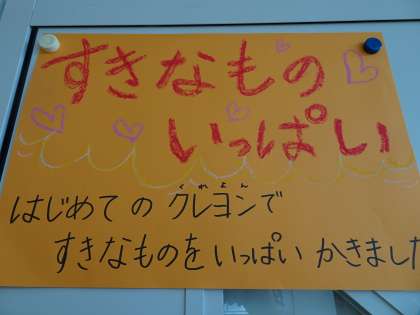 すきなもの
いっぱい
はじめての クレヨンで
くれよん
すきなものを いっぱい かきました